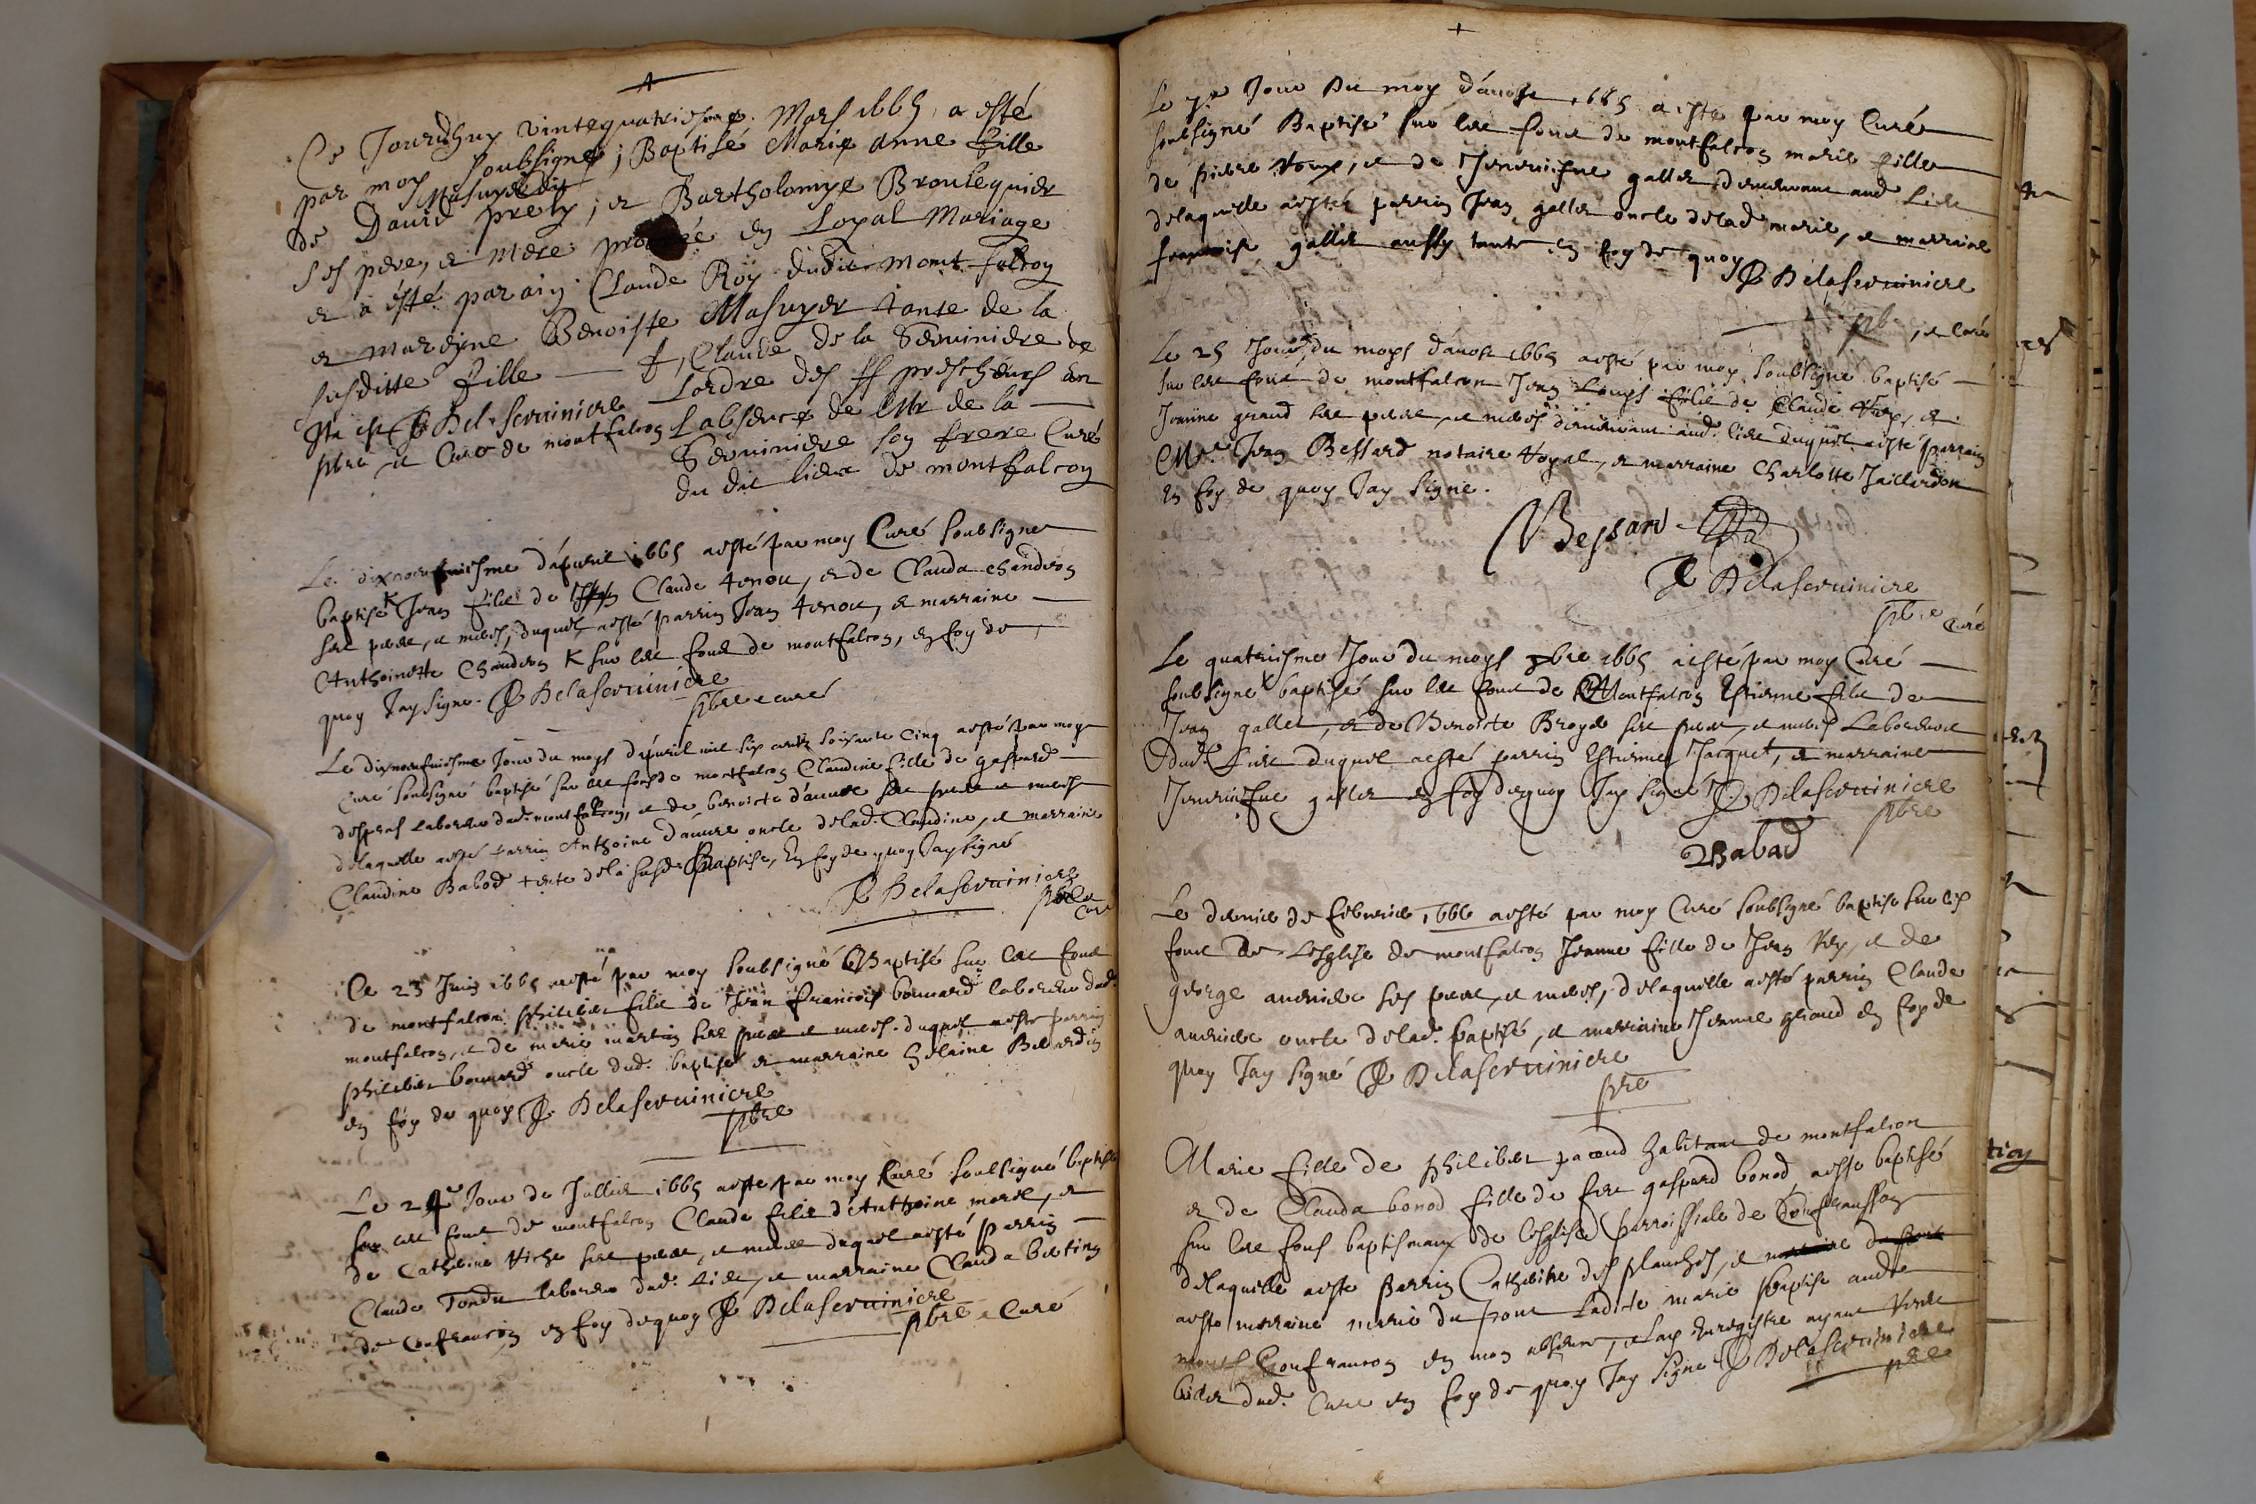 Ce Jourdhuy vintequatriesme Mars 1665 a esté
par moy soubsigne ; Baptisé Marie Anne fille
Masuyer dit
de David prety ; et Bartholomye Broulequier
ses pere, et mere procréé en Loyal Mariage
et a ésté parain Claude Roy dudit mont falcon
et mareyne Benoiste Masuyer tante de la
susditte fille f, Claude de la Serviniere de
Lordre des ff prescheurs en
Labsence de Mr de la
Serviniere son frere Curé
du dit lieu de montfalcon
Ita est DelaServiniere
pbre et Curé de montfalcon
Le dixneufuiesme dapuril 1665 aesté par moy Curé soubsigne
baptisé Jean filz de Claude , et de Clauda chandron
ses pere, et meres, duquel aesté parrin Jean , et marraine
Anthoinette Chandron K sur les fond de montfalcon, en foy de
quoy Jay signe. DelaServiniere
pbre e curé
Le dixneufuiesme Jour du moys dapuril mil six centz soixante cinq aesté par moy
Curé soubsigné baptisé sur les fons de montfalcon Claudine fille de gaspard
despras Laboreur dud. montfalcon, et de benoiste dauure ses pere et meres
delaquelle aesté parrin Anthoine dauure oncle delad. Claudine, et marraine
Claudine Babod tante dela susd. Baptisé, En foy de quoy Jay signé
DelaServiniere
pbre
Curé
Le 25 Juin 1665 aesté par moy soubsigné Baptisé sur les fond
de montfalcon philibert filz de Jean francois bonnard laboreur dud.
montfalcon, et de marie martin ses pere et meres. duquel aesté parrin
philibert bonnard oncle dud. baptisé et marraine helaine Belardin
en foy de quoy DelaServiniere
pbre
Le 24e Jour de Juillet 1665 aesté par moy Curé soubsigné baptisé
sur les fond de montfalcon Claude filz d'Anthoine morel, et
de Catherine Viche ses pere, et mere duquel aesté parrin
Claude Tondu laboreur dud. Lieu, et marraine Clauda bertin
de Confrancon en foy dequoy DelaServiniere
pbre e Curé
Le 7e Jour du moy d'auost 1665 a esté par moy Curé
soubsigné Baptisé sur les fond de montfalcon marie fille
de pierre , et de Jeneviefue gallet demeurant aud Lieu
delaquelle aesté parrin Jean gallet oncle delad marie, et marraine
francoise gallet aussy tante en foy de quoy DelaServiniere
pb , et Curé
Le 25 Jour du moys dauost 1665 aesté par moy soubsigné baptisé
sur les fond de montfalcon Jean Louys filz de Claude , et
Jeanne grand ses pere, et meres demeurant aud. lieu duquel aesté parrain
Mre Jean Bessard notaire Royal, et marraine Charlotte Taillardon
En foy de quoy Jay signe.
Bessard
DelaServiniere
pbre
Curé
Le quatriesme Jour du moys 9bre 1665 aesté par moy Curé
soubsigné baptisé sur les fond de Montfalcon Estienne filz de
Jean gallet, et de Benoiste Broyer ses pere, et meres Laboreur
dud. Lieu duquel aesté parrin Estienne Jacquet, et marraine
Jeneviefue gallet en foy dequoy Jay signé DelaServiniere
pbre
Babad
Le dernier de febvrier 1666 aesté par moy Curé soubsigné baptisé sur les
fond de Lesglise de montfalcon Jeanne fille de Jean Rey, et de
george ses pere, et meres, delaquelle aesté parrin Claude
oncle delad. baptisé, et marraine Jeanne giroud en foy de
quoy Jay signé DelaServiniere
pbre
Marie fille de philibert pacoud habitant de montfalcon
et de Clauda bonod fille de feu gaspard bonod, aesté baptisé
sur les fons baptismaux de lesglise parroissiale de Confransson
delaquelle aesté parrin Catherine des planches, et
aesté marraine marie du pont Ladicte marie baptisé audit
Confrancon en mon absence, et lay Enregistre ayant Veu le
billet dud. Curé en foy de quoy Jay signe DelaServiniere
pbre